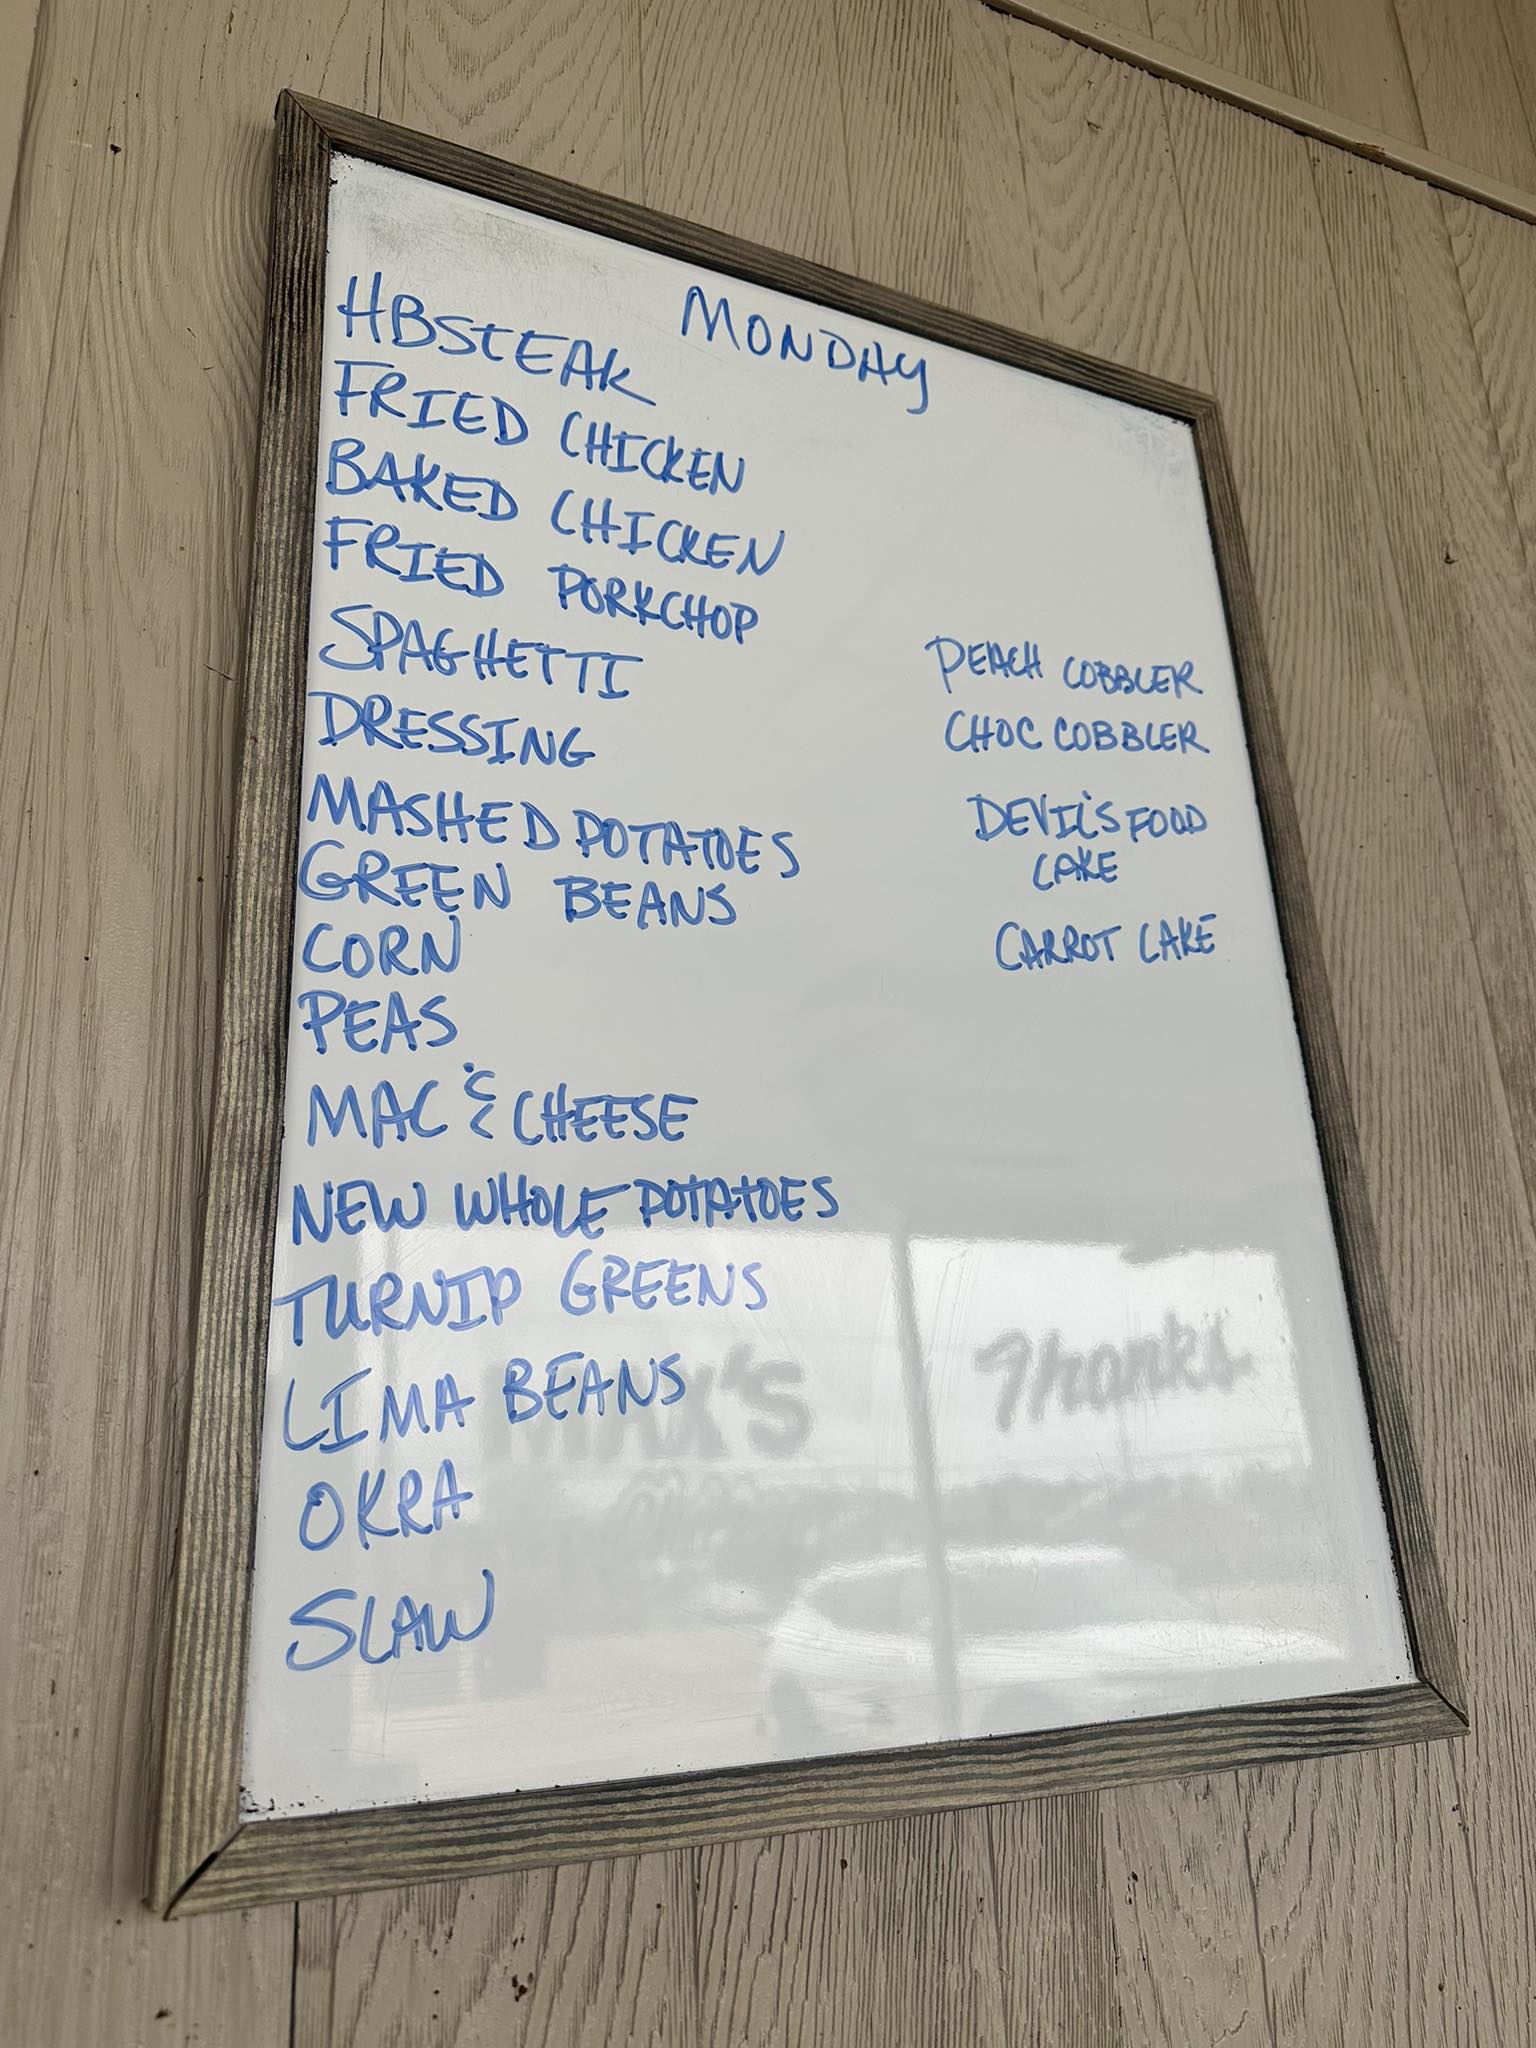 MONDAY
HBSTEAK
FRIED CHICKEN
BAKED CHICKEN
FRIED PORKCHOP
SPAGHETTI
DRESSING
MASHED POTATOES
GREEN BEANS
CORN
PEAS
MAC & CHEESE
NEW WHOLE POTATOES
TURNIP GREENS
LIMA BEANS
OKRA
SLAW
PEACH COBBLER
CHOC COBBLER
DEVIL'S FOOD
CAKE
CARROT CAKE
MAX'S
Thanks